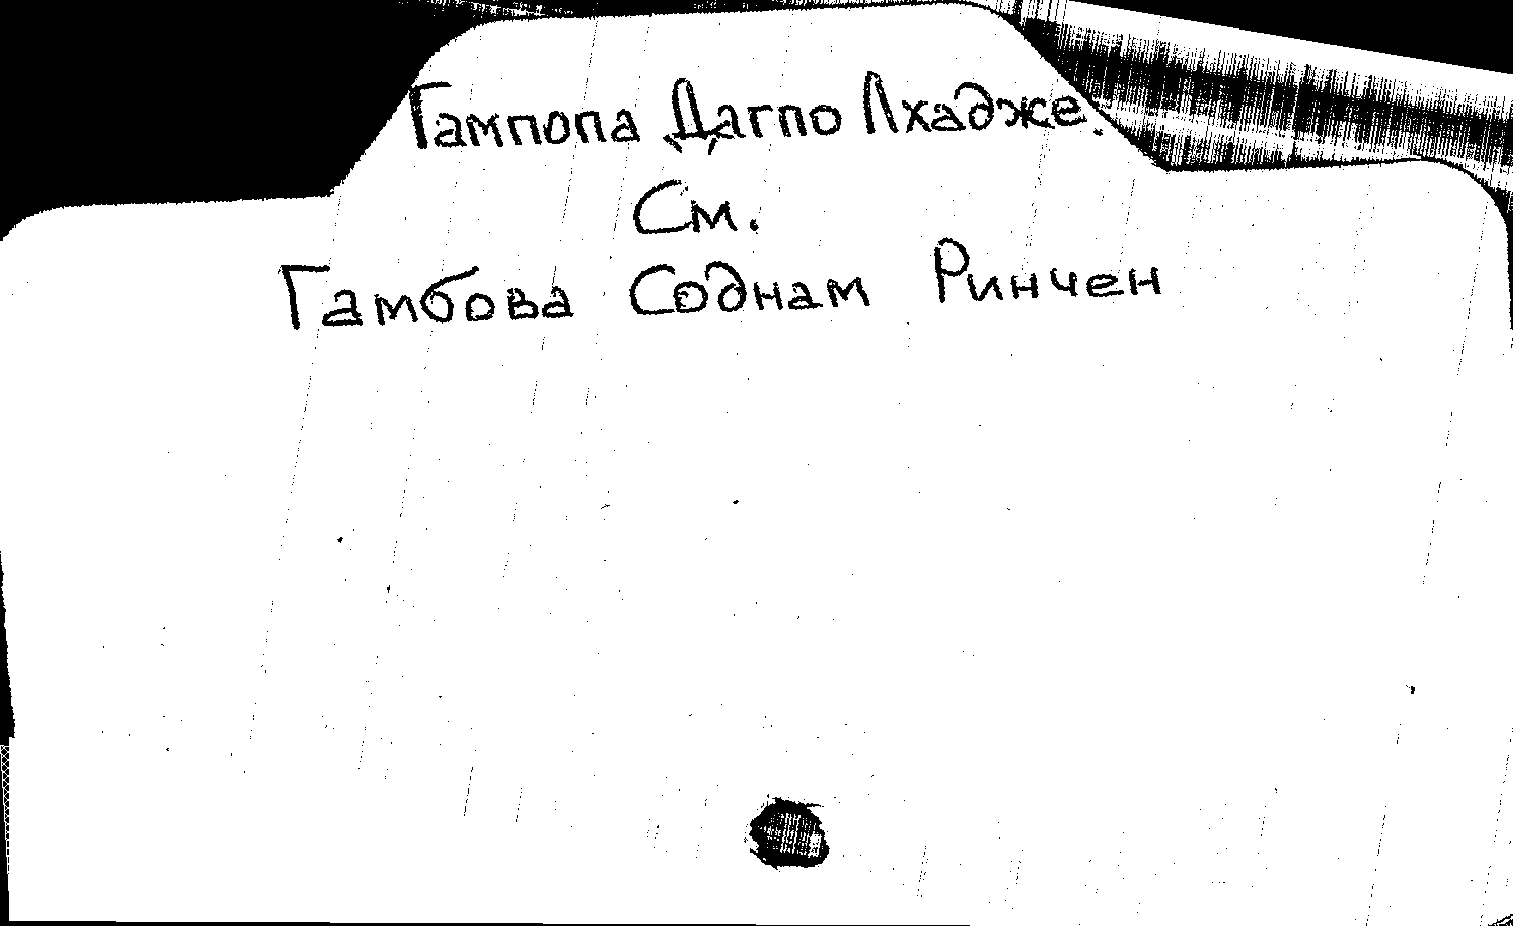 Гампопа Дагпо Лхадже.
См.
Гамбова Соднам Ринчен